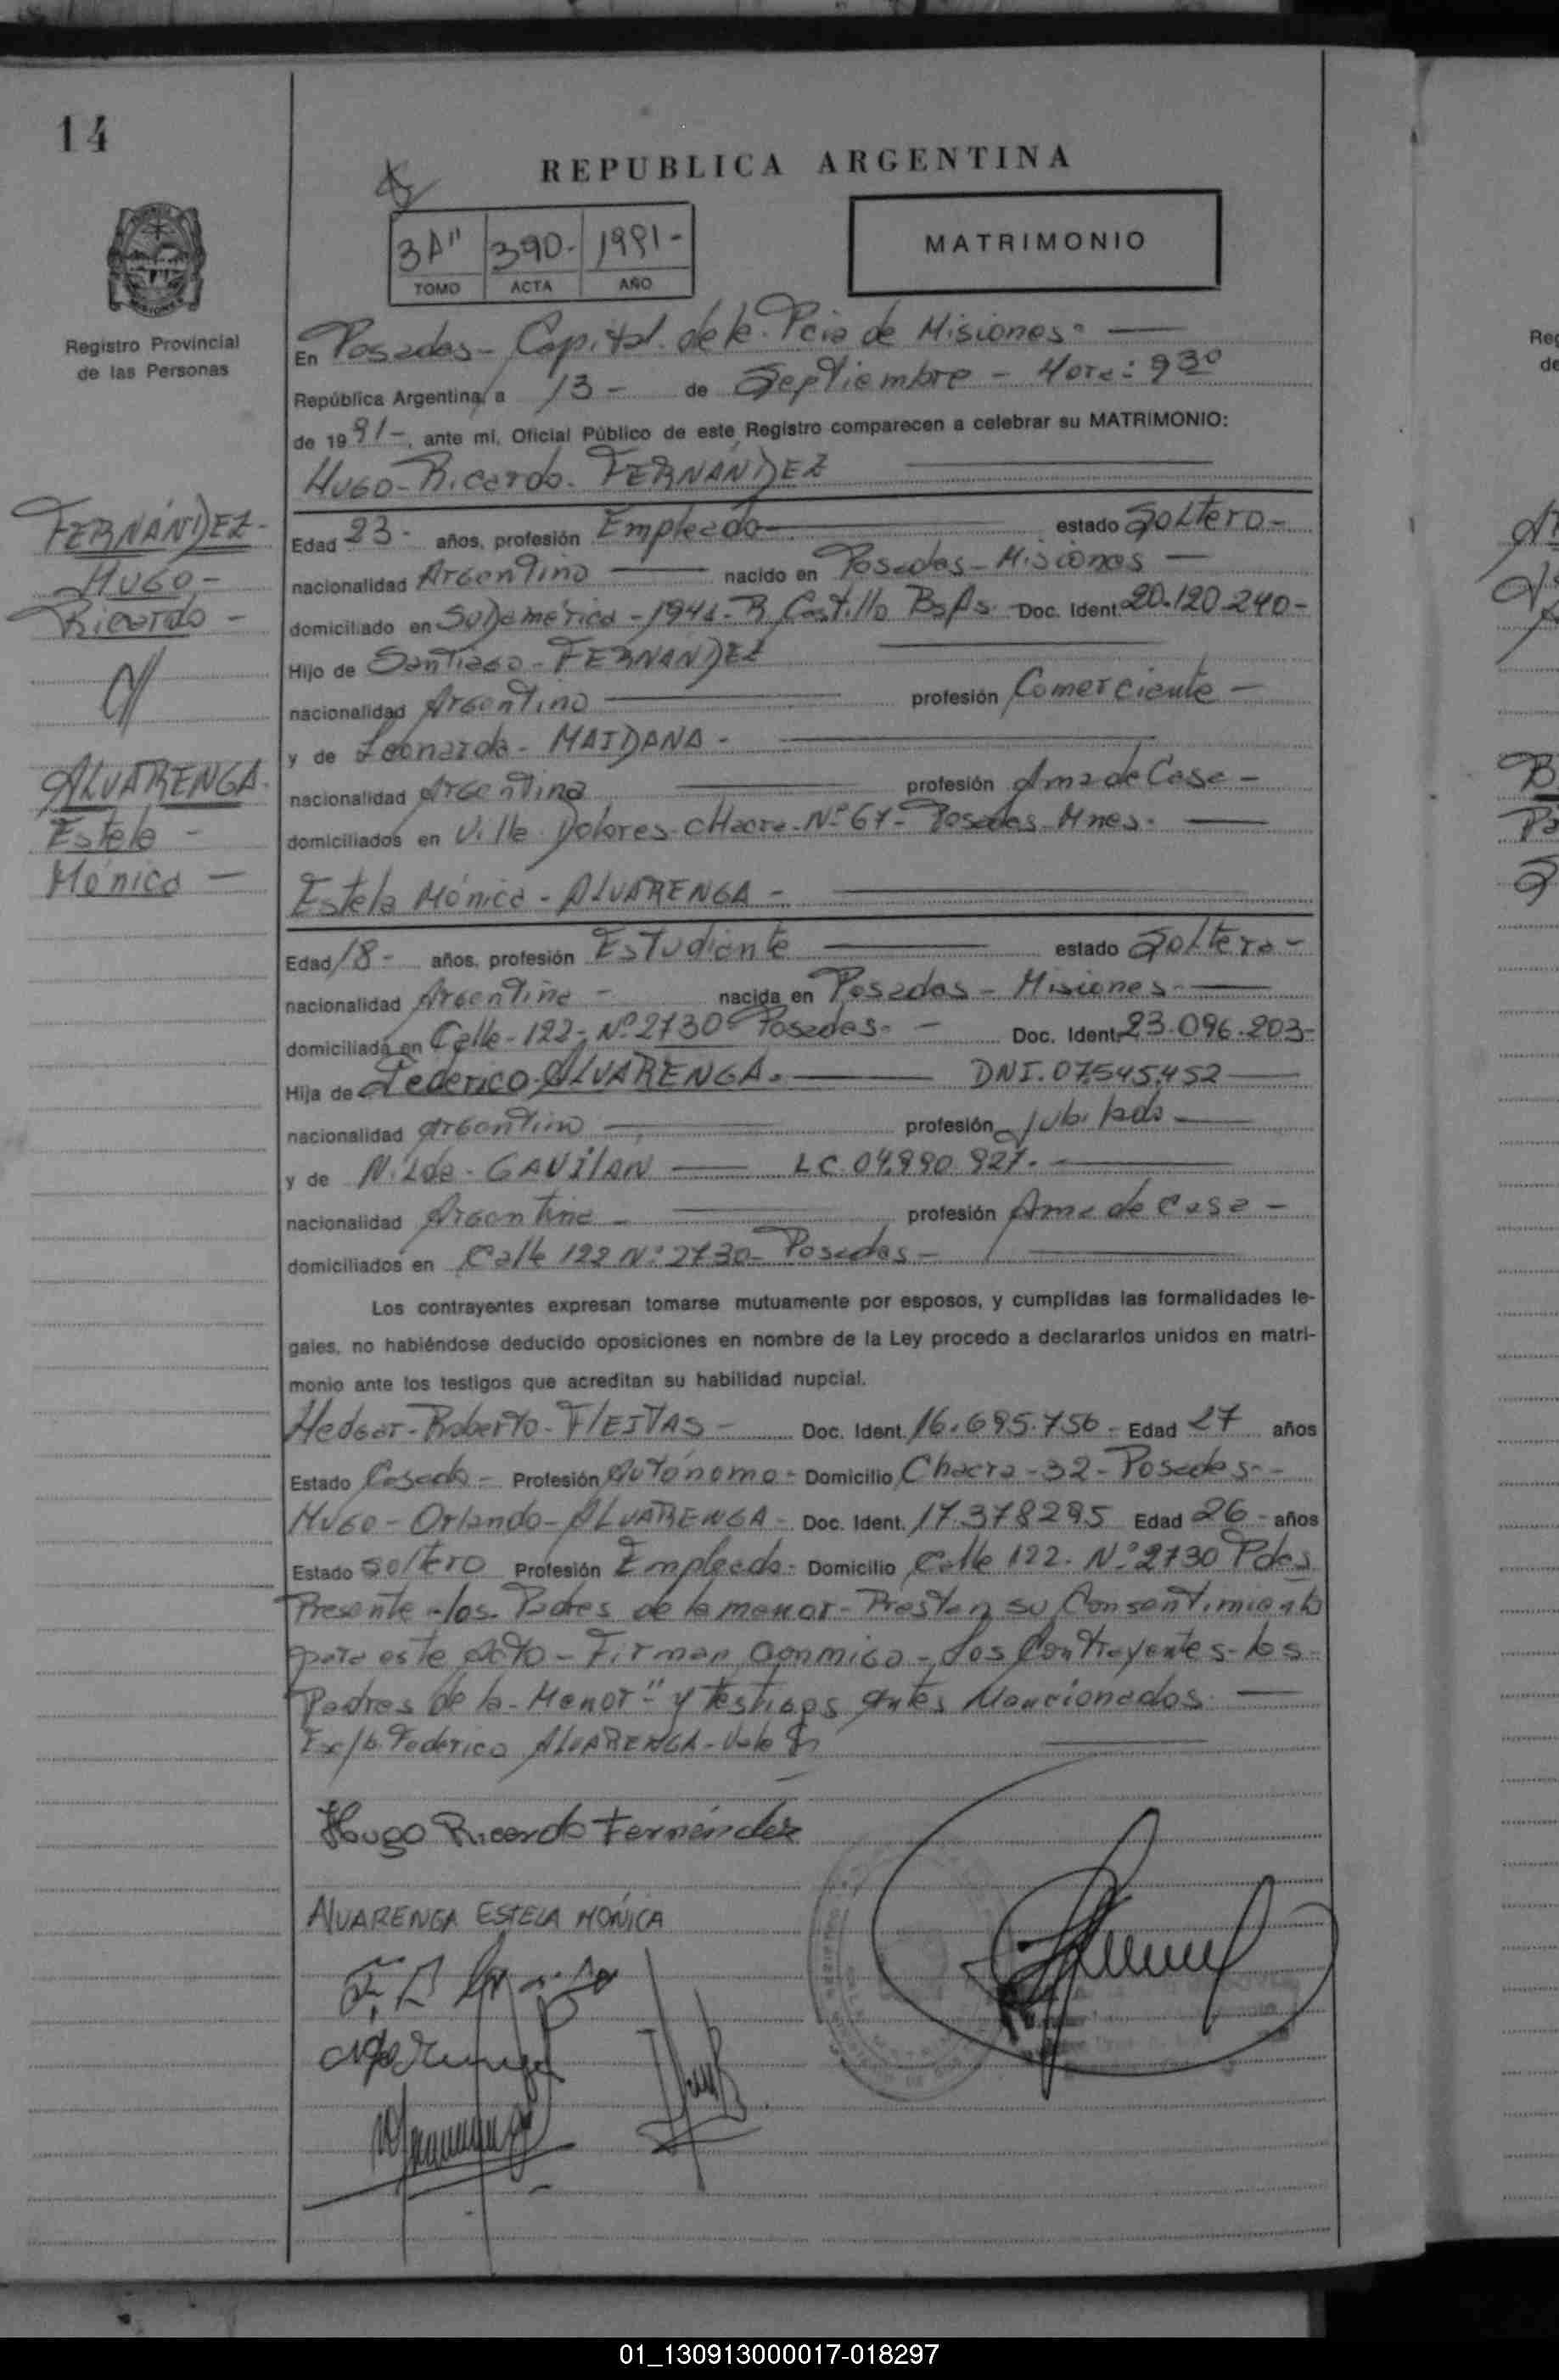 14
REPUBLICA ARGENTINA
3A" 390- 1991-
TOMO ACTA AÑO
MATRIMONIO
Registro Provincial
de las Personas
En Posadas- Capital de la Pcia de Misiones-
República Argentina, a 13- de Septiembre - Hora: 930
de 1991-, ante mi, Oficial Público de este Registro comparecen a celebrar su MATRIMONIO:
Hugo-Ricardo- FERNÁNDEZ
FERNÁNDEZ-
Hugo-
Ricardo-
Edad 23- años, profesión Empleado estado Soltero-
nacionalidad Argentino nacido en Posadas-Misiones
domiciliado en Sudamérica-1941- R. Castillo BsAs. Doc. Ident. 20.120.240-
Hijo de Santiago-FERNÁNDEZ
nacionalidad Argentino profesión Comerciante-
y de Leonarda- MAIDANA-
nacionalidad Argentina profesión Ama de Casa-
domiciliados en Villa Dolores-Chacra-Nº67- Posadas-Mnes.
ALVARENGA-
Estela-
Mónica
Estela Mónica-ALVARENGA-
Edad 18- años, profesión Estudiante estado Soltera-
nacionalidad Argentina- nacida en Posadas-Misiones-
domiciliada en Calle-122-Nº2730- Posadas- Doc. Ident. 23.096.203-
Hija de Federico ALVARENGA. DNI. 07.545.452
nacionalidad argentino profesión Jubilado
y de Nilda-GAVILAN LC. 04.990.927.
nacionalidad Argentina- profesión Ama de Casa-
domiciliados en Calle 122 Nº2730- Posadas-
Los contrayentes expresan tomarse mutuamente por esposos, y cumplidas las formalidades le-
gales, no habiéndose deducido oposiciones en nombre de la Ley procedo a declararlos unidos en matri-
monio ante los testigos que acreditan su habilidad nupcial.
Hedgar-Roberto-FLEITAS- Doc. Ident. 16.695.756- Edad 27 años
Estado Casado- Profesión Autónomo- Domicilio Chacra-32-Posadas-
Hugo-Orlando-ALVARENGA- Doc. Ident. 17.378295 Edad 26- años
Estado soltero Profesión Empleado- Domicilio Calle 122. Nº2730 Pdas
Presente-los-Padres de la menor-Prestan su Consentimiento
para este Acto-Firman Conmigo-Los Contrayentes-los-
Padres de la-Menor" y testigos antes Mencionados.
Federico ALVARENGA-Vale
Hugo Ricardo Fernández
ALVARENGA ESTELA MÓNICA
01_130913000017-018297